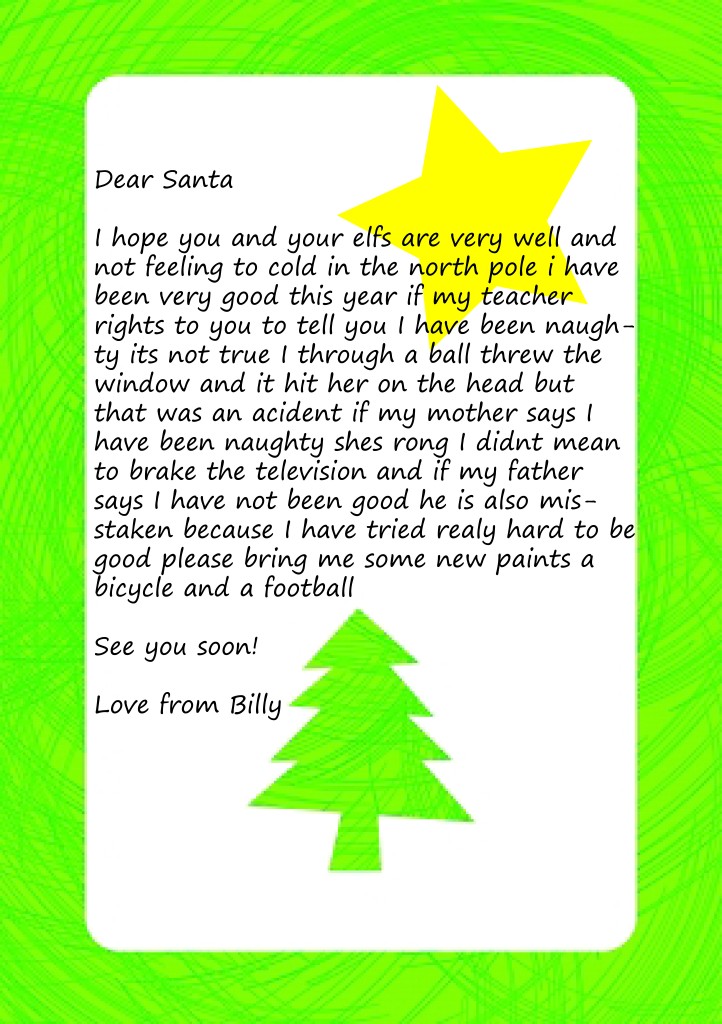 Dear Santa
I hope you and your elfs are very well and
not feeling to cold in the north pole i have
been very good this year if my teacher
rights to you to tell you I have been naugh-
ty its not true I through a ball threw the
window and it hit her on the head but
that was an acident if my mother says I
have been naughty shes rong I didnt mean
to brake the television and if my father
says I have not been good he is also mis-
staken because I have tried realy hard to be
good please bring me some new paints a
bicycle and a football
See you soon!
Love from Billy